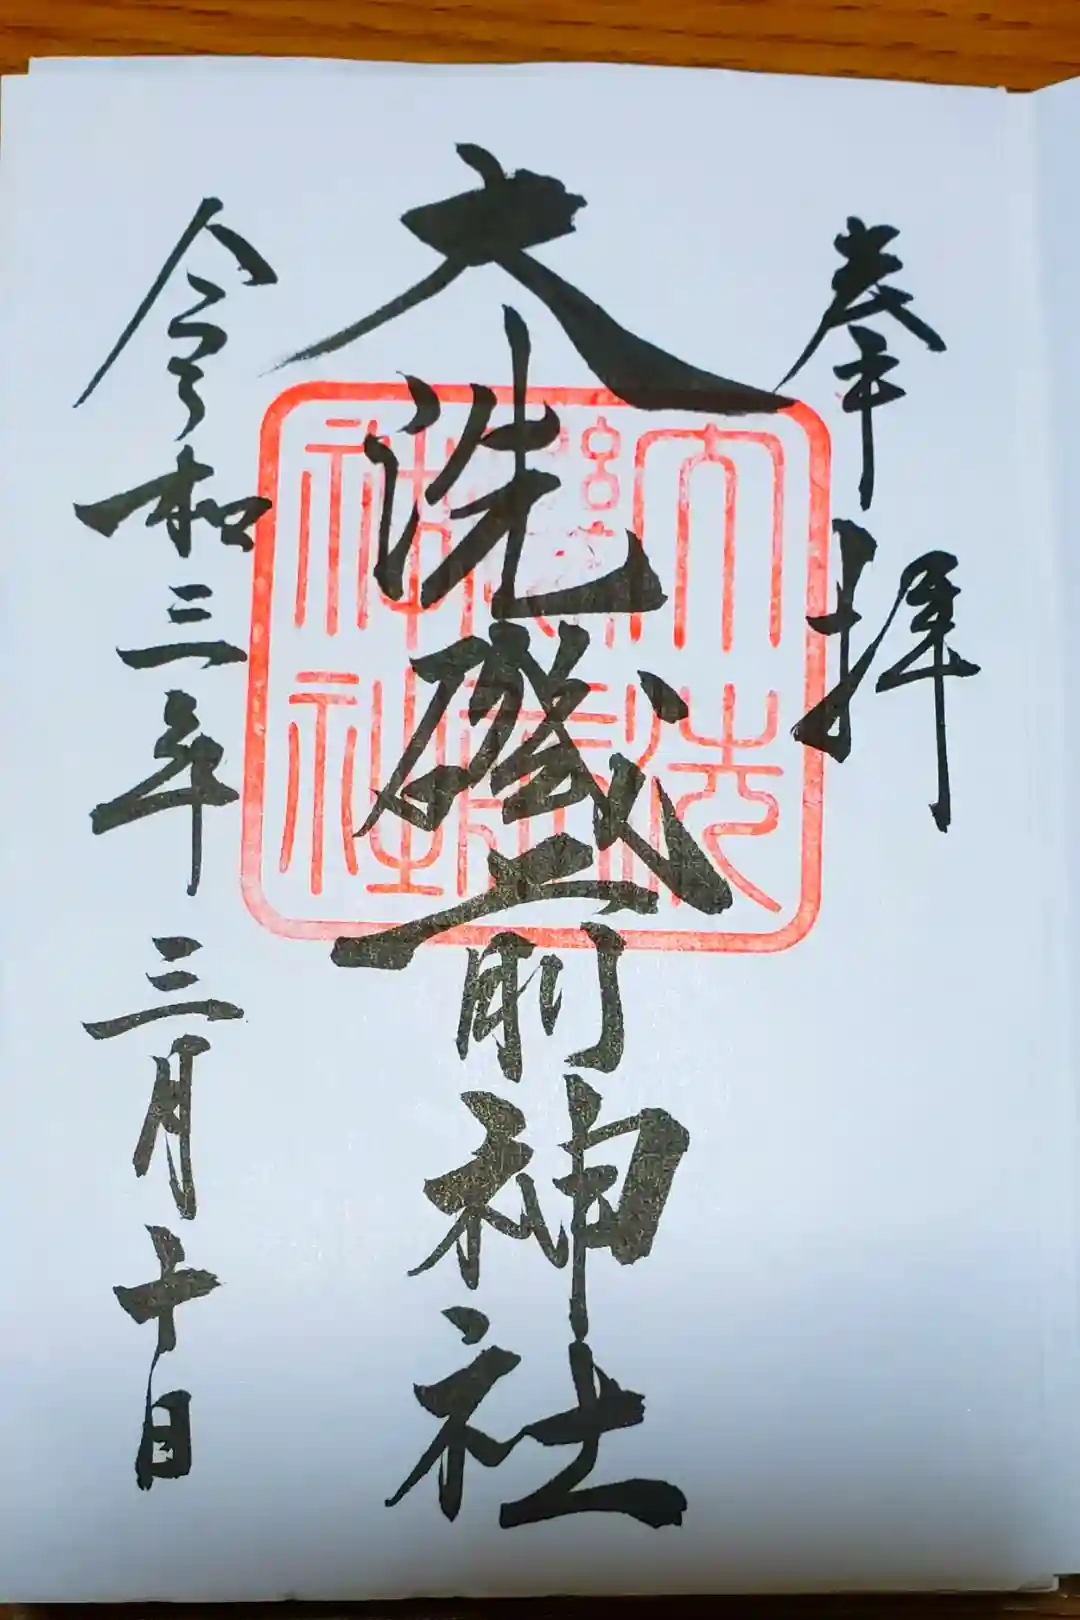 奉拝
大洗磯前神社
令和三年三月十日
大洗
磯前
神社